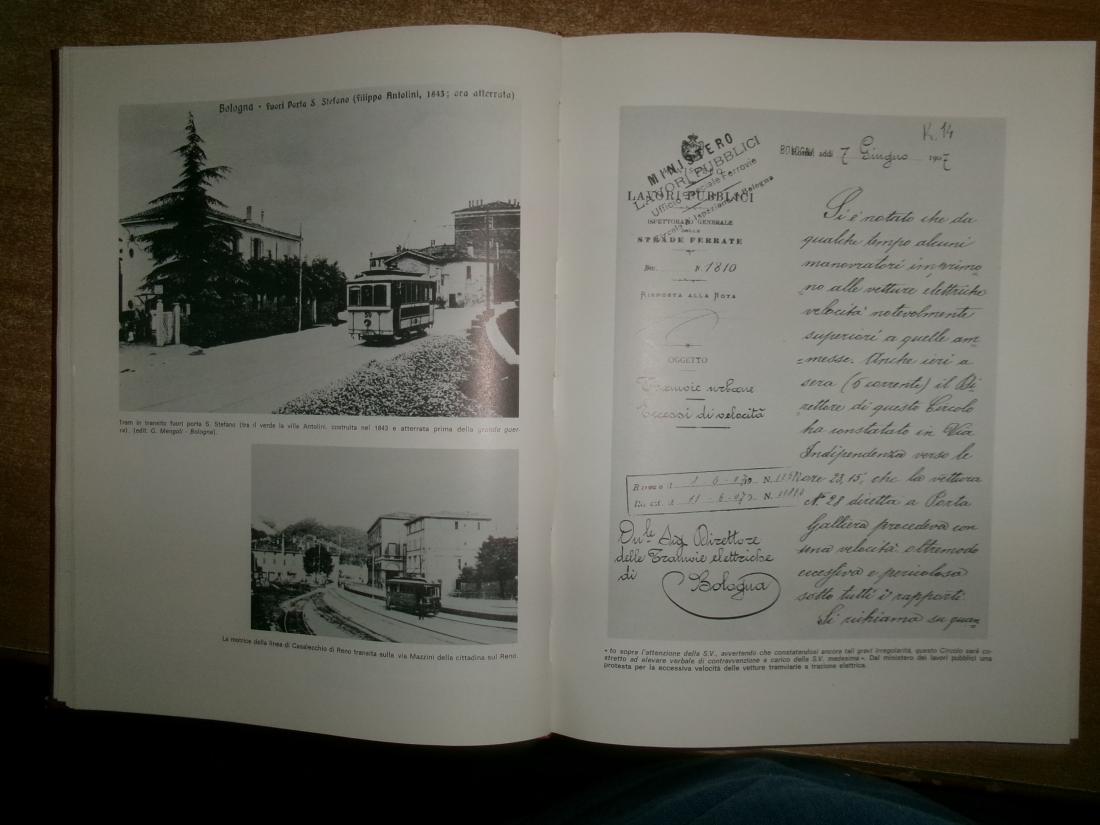 Bologna - Fuori Porta S. Stefano (Filippo Antolini, 1843; ora atterrata)
Tram in transito fuori porta S. Stefano (tra il verde la villa Antolini, costruita nel 1843 e atterrata prima della grande guer-
ra). (edit. G. Mengoli - Bologna).
La motrice della linea di Casalecchio di Reno transita sulla via Mazzini della cittadina sul Reno.
K. 14
MINISTERO
LAVORI PUBBLICI
Ufficio Speciale Ferrovie
Circolo d'Ispezione Bologna
LAVORI PUBBLICI
ISPETTORATO GENERALE
DELLE
STRADE FERRATE
N. 1810
RISPOSTA ALLA NOTA
OGGETTO
Tramvie urbane
Eccessi di velocità
N.
N.
On.le Sig. Direttore
delle Tramvie elettriche
di
Bologna
BOLOGNA addì 7 Giugno 1907
Si è notato che da
qualche tempo alcuni
manovratori imprimo
no alle vetture elettriche
velocità notevolmente
superiori a quelle am
=messe. Anche ieri a
sera (6 corrente) il Di
rettore di questo Circolo
ha constatato in Via
Indipendenza verso le
ore 23,15, che la vettura
N° 28 diretta a Porta
Galliera procedeva con
una velocità oltremodo
eccessiva e pericolosa
sotto tutti i rapporti.
Si richiama su quan
« to sopra l'attenzione della S.V., avvertendo che constatandosi ancora tali gravi irregolarità, questo Circolo sarà co-
stretto ad elevare verbale di contravvenzione a carico della S.V. medesima ». Dal ministero dei lavori pubblici una
protesta per la eccessiva velocità delle vetture tramviarie a trazione elettrica.